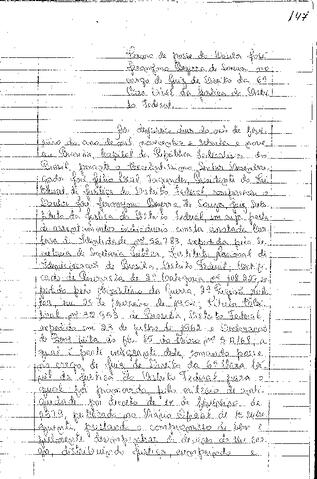 147
Termo de posse do Doutor José
Jeronymo Bezerra de Souza no
cargo de Juiz de Direito da 6ª
Vara Cível da Justiça do Distri
to Federal.
Aos dezesseis dias do mês de
do ano de mil novecentos e setenta e nove
em Brasília, Capital da República Federativa do
Brasil, perante o Excelentíssimo Senhor Desembar
gador José Fazendas, Presidente do Tri
bunal de Justiça do Distrito Federal, compareceu o
Doutor José Jeronymo Bezerra de Souza, Juiz Subs
tituto da Justiça do Distrito Federal, em cuja pasta
de assentamentos individuais consta anotada Car
teira de Identidade nº 52.783, expedida pela Se
cretaria de Segurança Pública, Instituto Nacional de
Identificação de Brasília, Distrito Federal, Certifi
cado de Reservista de 3ª Categoria nº 108.825, ex
pedido pelo Ministério da Guerra,
em 25 de fevereiro de 1952, Título Elei
toral nº 32.553, de Brasília, Distrito Federal,
expedido em 23 de julho de 1962 e Declaração
de Bens feita às fls. 15 do Livro nº
qual é parte integrante deste, tomando posse
no cargo de Juiz de Direito da 6ª Vara Cí
vel da Justiça do Distrito Federal, para o
qual foi promovido pelo critério de anti
guidade, por decreto de 14 de fevereiro de
1979, publicado no Diário Oficial de
prestando o compromisso de bem e
fielmente desempenhar os deveres do seu car
go, distribuindo justiça